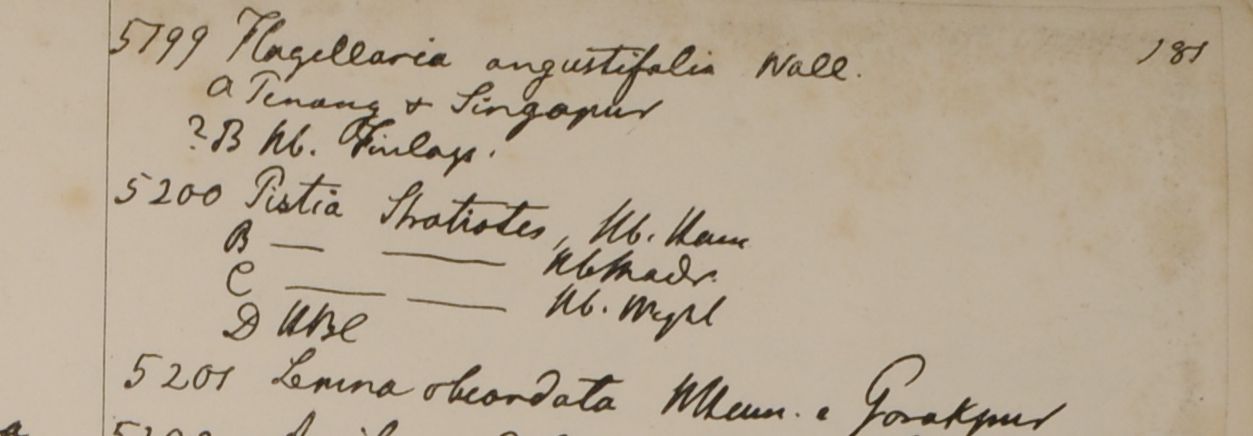 5199 Flagellaria angustifolia Wall. 181
a Penang & Singapur
? B Hb. Finlays.
5200 Pistia Stratiotes, Hb. Ham
B — — Hb Madr.
C — — Hb. Wight
D HBC
5201 Lemna obcordata HHam. e Gorakpur